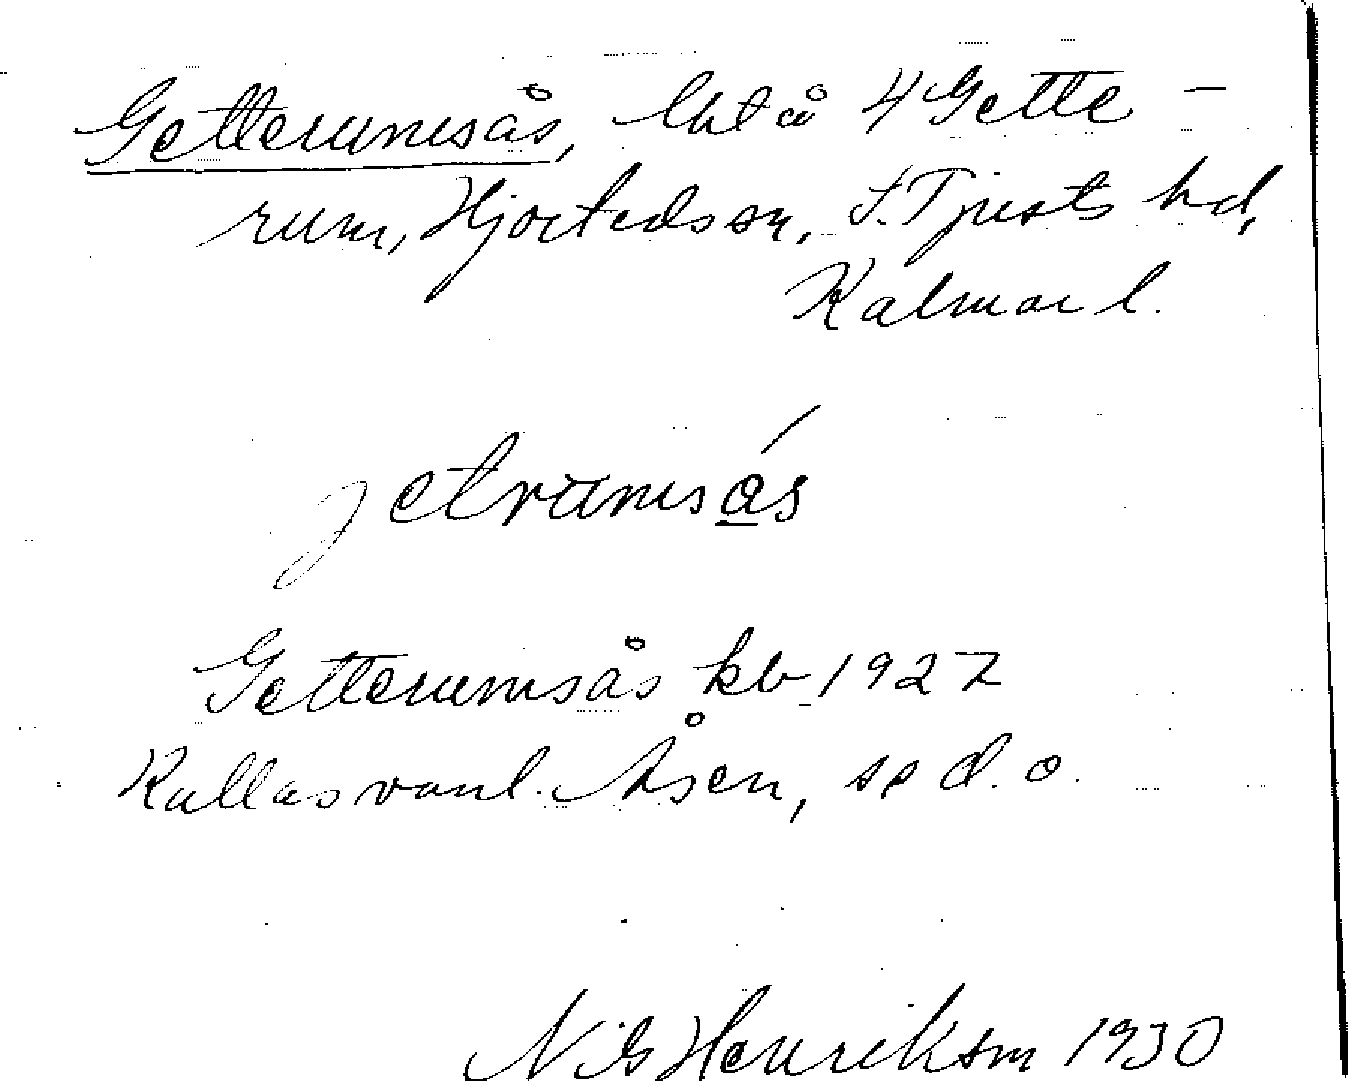 Getterumsås, lht å 4 Gette-
rum, Hjorteds sn, S. Tjusts hd,
Kalmar l.
jetrumsås
Getterumsås kb 1927
Kallas vanl. Åsen, se d. o.
N. G. Henriksm 1930